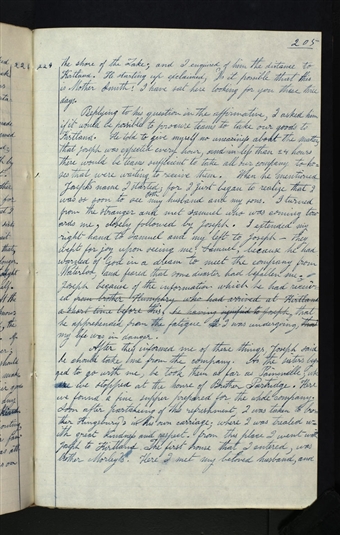 205
the shore of the Lake; and I enquired of him the distance to
Kirtland. He starting up exclaiming, Is it possible that this
is Mother Smith? I have sat here looking for you these three
days.
Replying to his question in the affirmative, I asked him
if it would be possible to procure teams to take our goods to
Kirtland. He told to give myself no uneasiness about the matter,
that Joseph was expected every hour, and in less than 24 hours
there would be teams sufficient to take all our company to hou-
ses that were waiting to receive them. When he mentioned
Joseph's name I started, for I just began to realize that I
was so soon to see both my husband and my sons. I turned
from the stranger and met Samuel who was coming tow-
ards me, closely followed by Joseph. I extended my
right hand to Samuel and my left to Joseph. They
wept for joy upon seeing me! Samuel, because he had
warned of God in a dream to meet the company from
Waterloo, and feared that some disaster had befallen me;
Joseph because of the information which he had receiv-
ed from brother Humphry who had arrived at Kirtland
a short time before this, Joseph, that
he apprehended from the fatigue I was undergoing, that
my life was in danger.
After they informed me of these things Joseph said
he should take me from the company. As the sisters beg-
ged to go with me, he took them as far as Painsville,
where we stopped at the house of Brother Partridge. Here
we found a fine supper prepared for the whole company.
Soon after partaking of this refreshment, I was taken to bro-
ther Kingsbury's in his own carriage, where I was treated w-
ith great kindness and respect. From this place I went with
Joseph to Kirtland. The first house that I entered, was
brother Morley's. Here I met my beloved husband, and
224